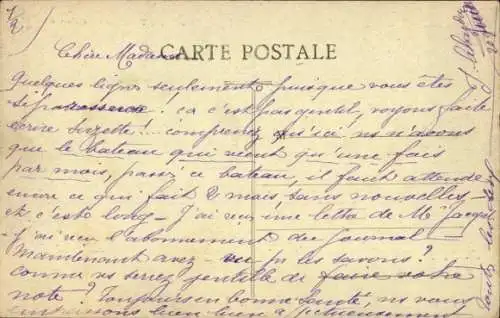 1/2
CARTE POSTALE
Chère Madame
Quelques lignes seulement puisque vous êtes
si paresseuse. ça c'est pas gentil, voyons faite
écrire Suzette! comprenez qu'ici ns n'avons
que le bateau qui vient qu'une fois
par mois, passé ce bateau, il faut attendre
encore ce qui fait 2 mois sans nouvelles
et c'est long - J'ai reçu une lettre de Mr
J'ai reçu l'abonnement du journal
Maintenant avez-vous les savons?
comme vs seriez gentille de faire votre
note? Toujours en bonne santé, ns vous
bien bien affectueusement